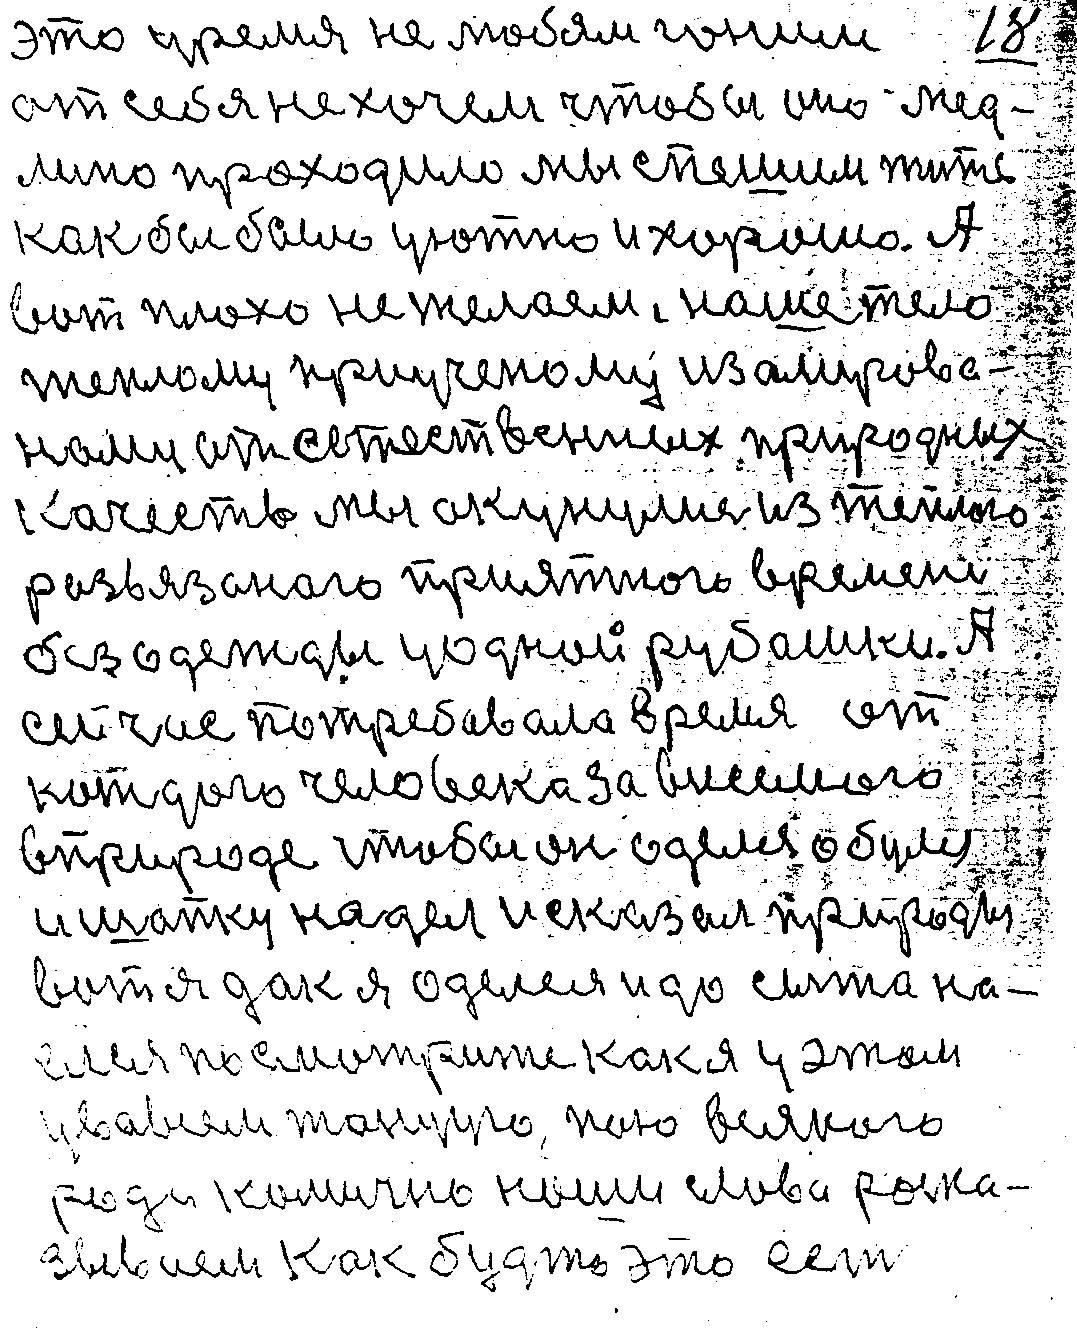 это уремя не любям гоним 18
от себя не хочем чтобы оно мед-
лино проходило мы спешим жить
как бы было уютно и хорошо. А
вот плохо не желаем, наше тело
теплому приученому изалирова-
ному от естественных природных
качеств мы окунулися из теплого
развязаного приятного времени
без одежды уодной рубашки. А
сейчас потребавала время от
котдого человека зависемого
вприроде чтобы он оделся обулся
и шапку надел и сказал природы
вот я дак я оделся и до сыта на-
елся посмотрите как я у этом
увавсем танцую, пою всякого
роди комично наши слова раска-
зываем как будто это есть